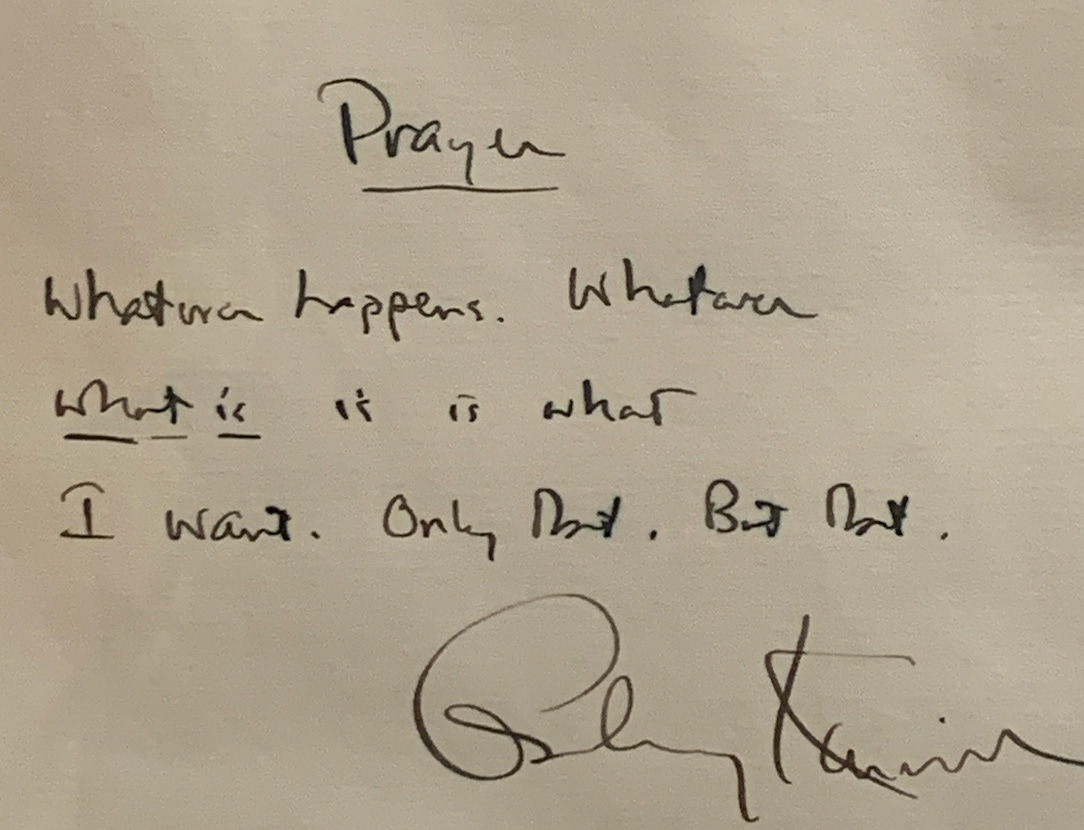 Prayer
Whatever happens. Whatever
what is is is what
I want. Only that. But that.
Galway Kinnell